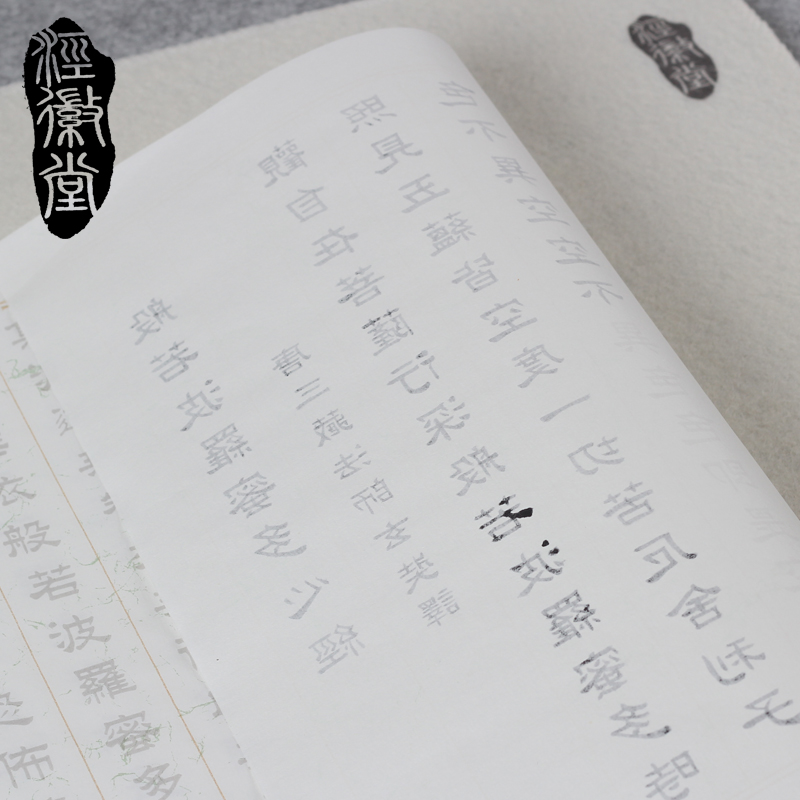 涇徽堂
涇徽堂
般若波羅蜜多心經
唐三藏法師玄奘譯
觀自在菩薩行深般若波羅蜜多時
照見五蘊皆空度一切苦厄舍利子
色不異空空不
依般若波羅蜜多
恐怖